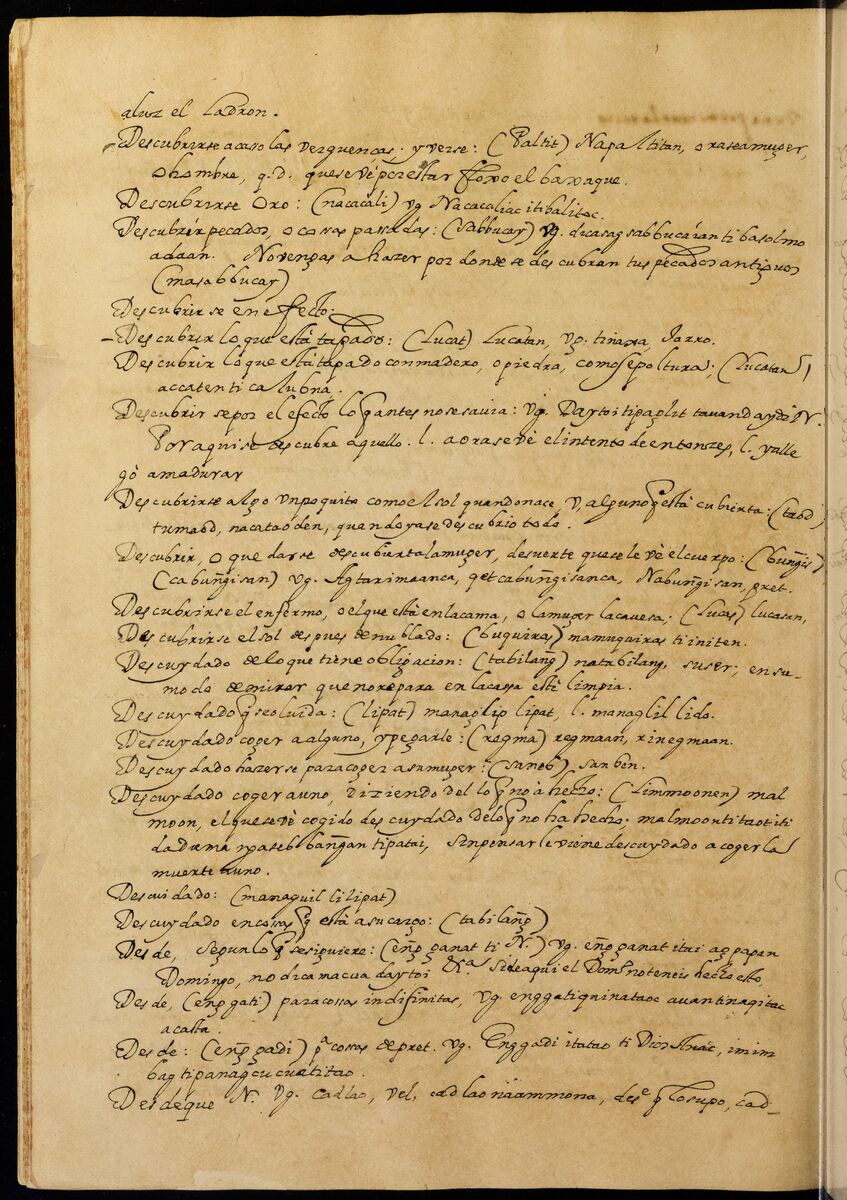 a luz el Ladron.
Descubrirse acaso las verguenças. y verse: (Paltit) Napaltitan, o rasea muger,
o hombre, q.d. que se vè por estar floxo el baxaque.
Descubrirse Oro: (nacacàli) vg Nacacaliac iti balitoc.
Descubrir pecados, o cosas pasadas: (Sabbucay) vg. dicas ag sabbucaran ti basolmo
adaan. No vengas a hazer por donde se descubran tus pecados antiguos
(masabbucay)
Descubrir se en effecto:
Descubrir lo que està tapado: (Lucat) Lucatan, vg. tinaxa, Jarro.
Descubrir lo que està tapado con madero, o piedra, como sepoltura; (Lucatan)
accaten ti calubna.
Descubrir se por el efecto lo q̃ antes no se savia: vg. Daytoi ti paglit tavandaydi N.
Por aqui se descubre aquello. l. aora se vè el intento de entonzes, l. ya lle
gò a madurar
Descubrirse algo un poquito como el sol quando nace, v, alguno q̃ està cubierta: (taod)
tumaod, nacataoden, quando ya se descubrio todo.
Descubrir, o quedarse descubierta la muger, de suerte que se le vè el cuerpo: (bung̃is)
(cabung̃isan) vg. Agtarimaanca, qet cabung̃isanca, Nabung̃isan, pret.
Descubrirse el enfermo, o el que està en la cama, o la muger la cavesa: (Lucas) lucasan,
Descubrirse el sol despues de nublado: (buquiras) mamuquiras ti initen.
Descuydado de lo que tiene obligacion: (tabilang̃) natabilang, su ser; en su-
mo do de mirar que no repara en la cassa està limpia.
Descuydado q̃ se oluida: (lipat) managlip lipat, l. managlil lido.
Descuydado coger a alguno, y pegarle: (regma) regmaan, rinegmaan.
Descuydado hazerse para coger a su muger: (saneb) sanben.
Descuydado coger a uno, diziendo del lo q̃ no à hecho: (Limmoonen) mal
moon, el que se vè cogido descuydado de lo q̃ no ha hecho. malmoon ti taot iti
dadama ngaseb bang̃an ti patai, sin pensar le viene descuydado a coger la
muerte a uno.
Descuidado: (managuil lilipat)
Descuydado en cosas q̃ està a su cargo: (tabilang̃)
Desde, segun lo q̃ se siguiere: (eng̃ ganat ti N.) vg. eng̃ ganat itai aggapan
Domingo, no dicamacua daytoi &.as Sideaqui el Domg.o no teneis hecho esto
Desde, (eng̃ gati) para cosas indifinitas, vg. enggati quinataoc avan ti nagitac
acasta.
Desde: (eng̃ gadi) p.a cosas de pret. vg. Enggadi itatao ti Dios Anac, imim
bag ti panagcucualitao.
Desde que N. vg. cadlao, vel, cadlao naammona, des.e q̃ lo supo, cad-